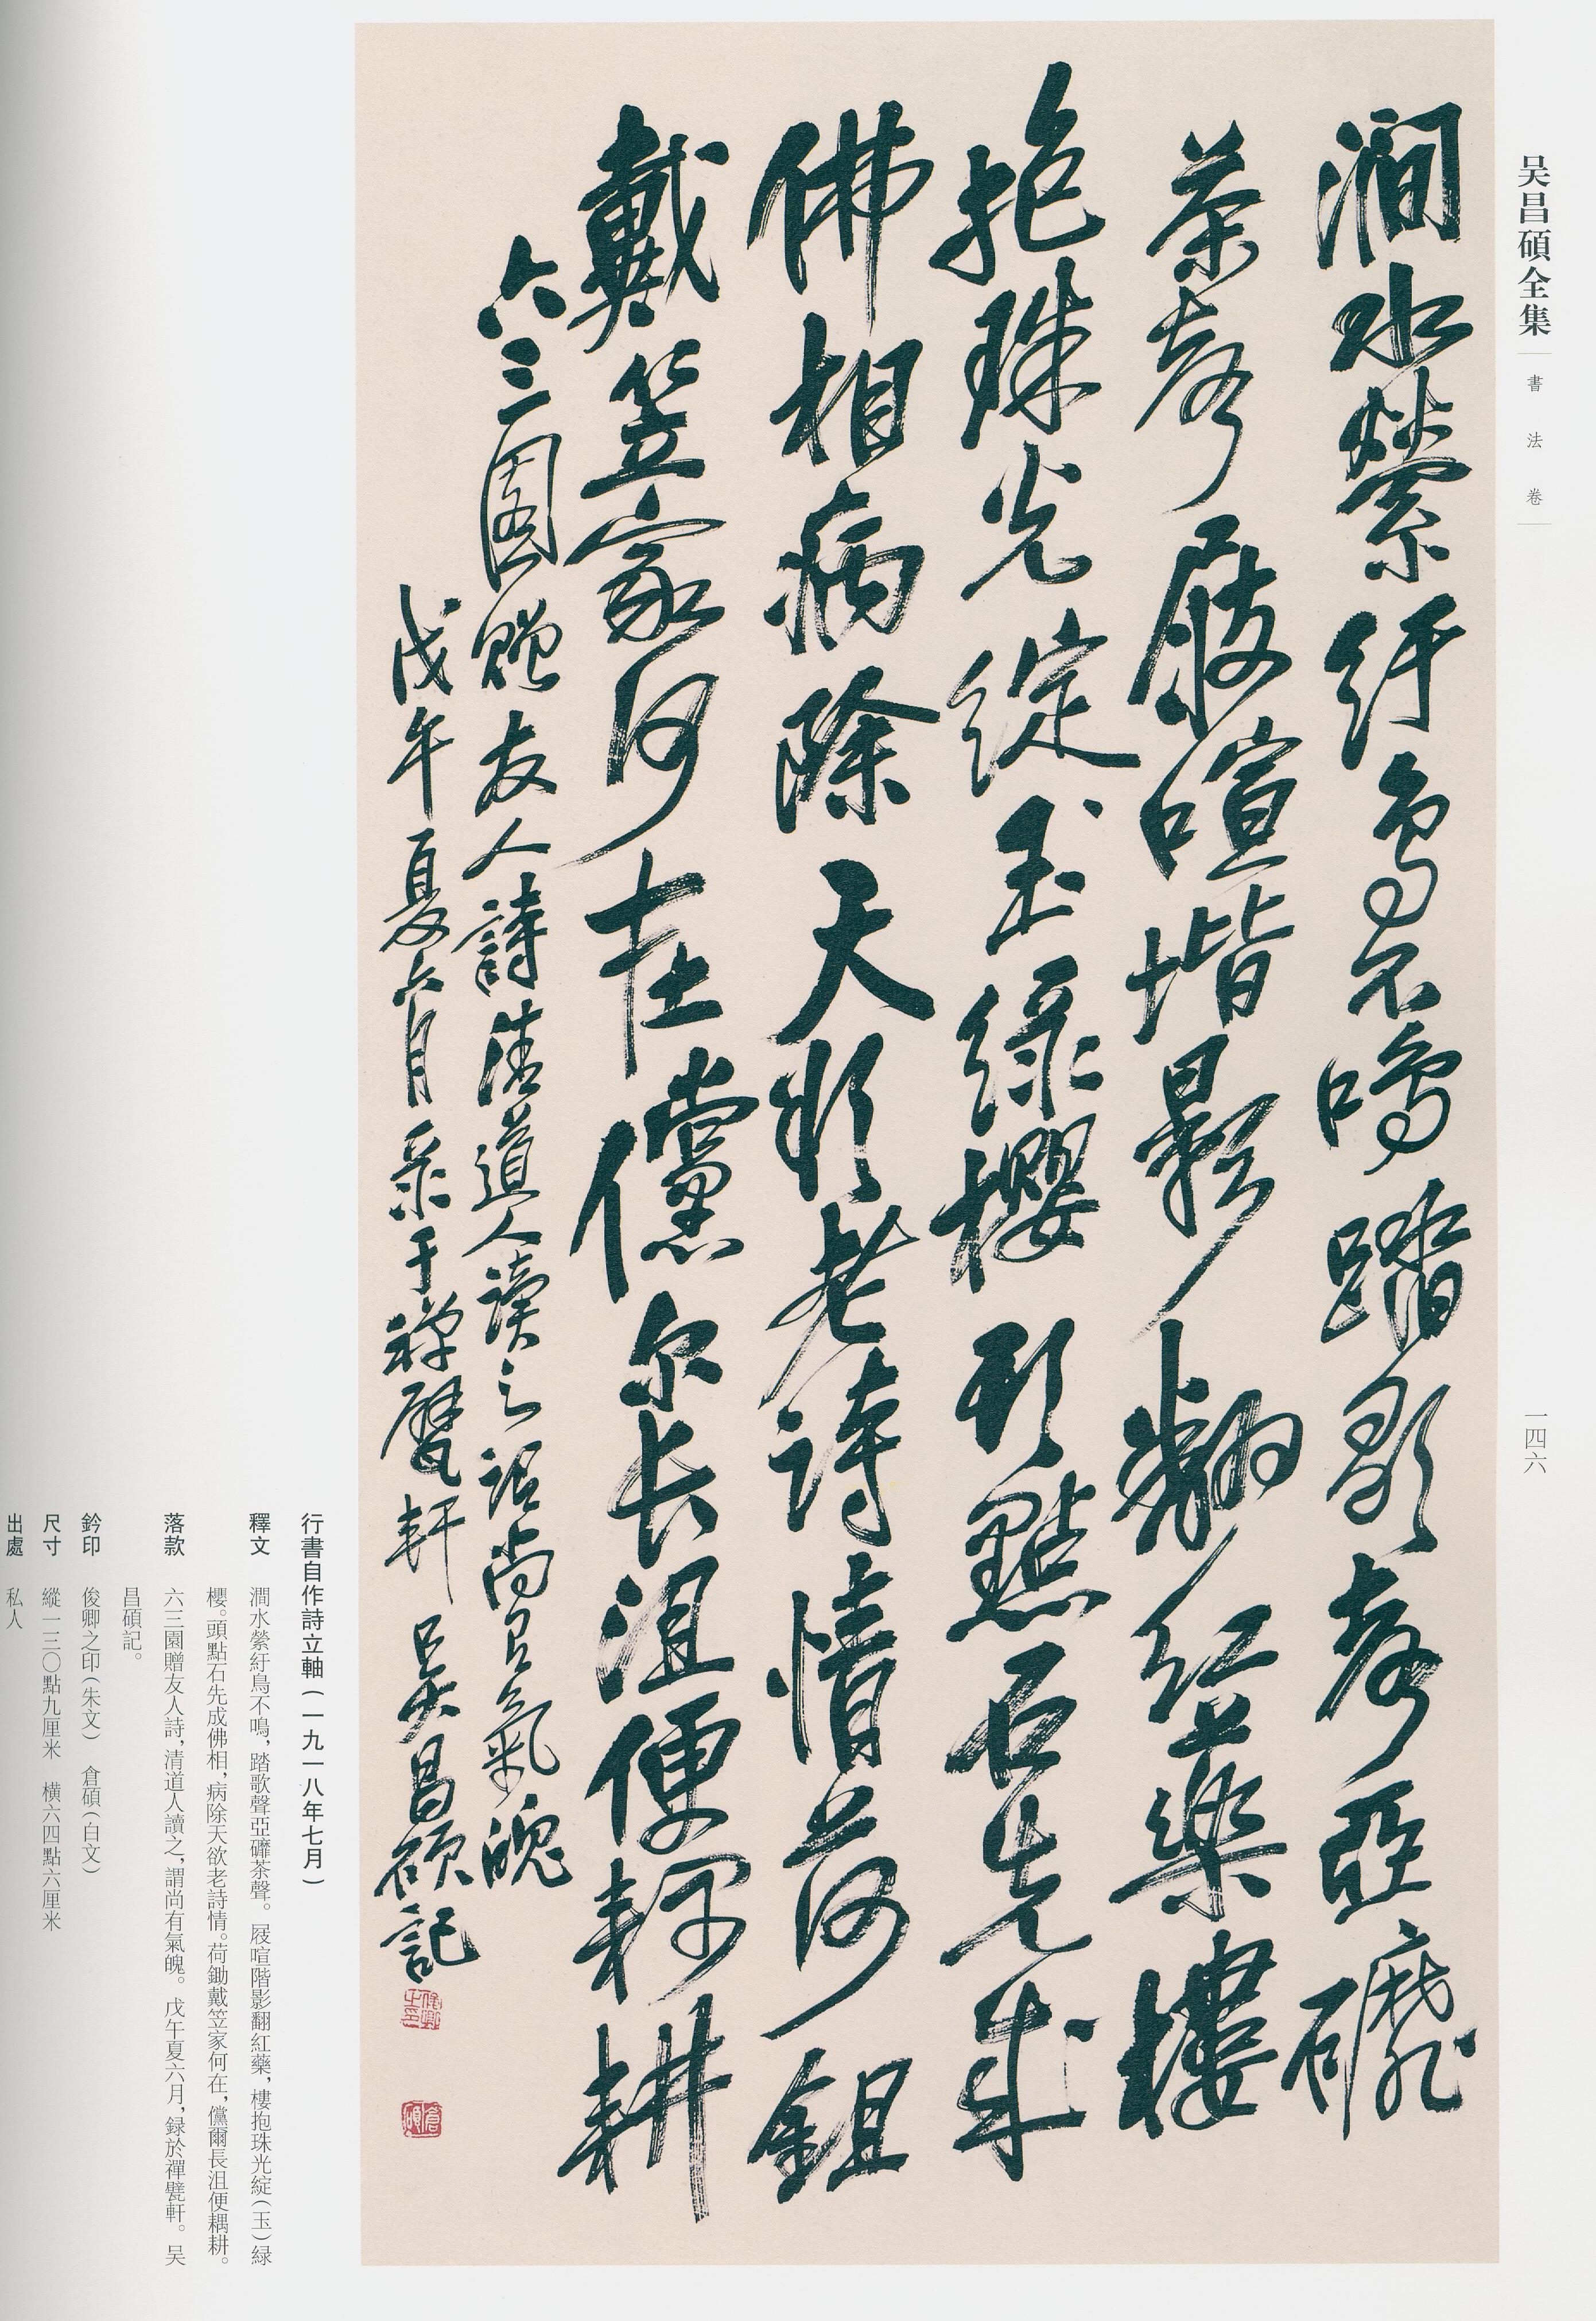 吴昌碩全集
書法卷
一四六
澗水縈紆鳥不鳴踏歌聲亞礳
茶聲屐喧堦影翻紅藥樓
抱珠光綻玉緑櫻頭點石先成
佛相病除天欲老詩情荷鉏
戴笠家何在儻尔長沮便耦耕
六三園贈友人詩清道人讀之謂尚有氣魄
戊午夏六月录于禪甓軒 吴昌碩記
行書自作詩立軸（一九一八年七月）
釋文　澗水縈紆鳥不鳴，踏歌聲亞礳茶聲。屐喧階影翻紅藥，樓抱珠光綻（玉）緑
櫻。頭點石先成佛相，病除天欲老詩情。荷鋤戴笠家何在，儻爾長沮便耦耕。
落款　六三園贈友人詩，清道人讀之，謂尚有氣魄。戊午夏六月，録於禪甓軒。吴
昌碩記。
鈐印　俊卿之印（朱文）　倉碩（白文）
尺寸　縱一三〇點九厘米　横六四點六厘米
出處　私人